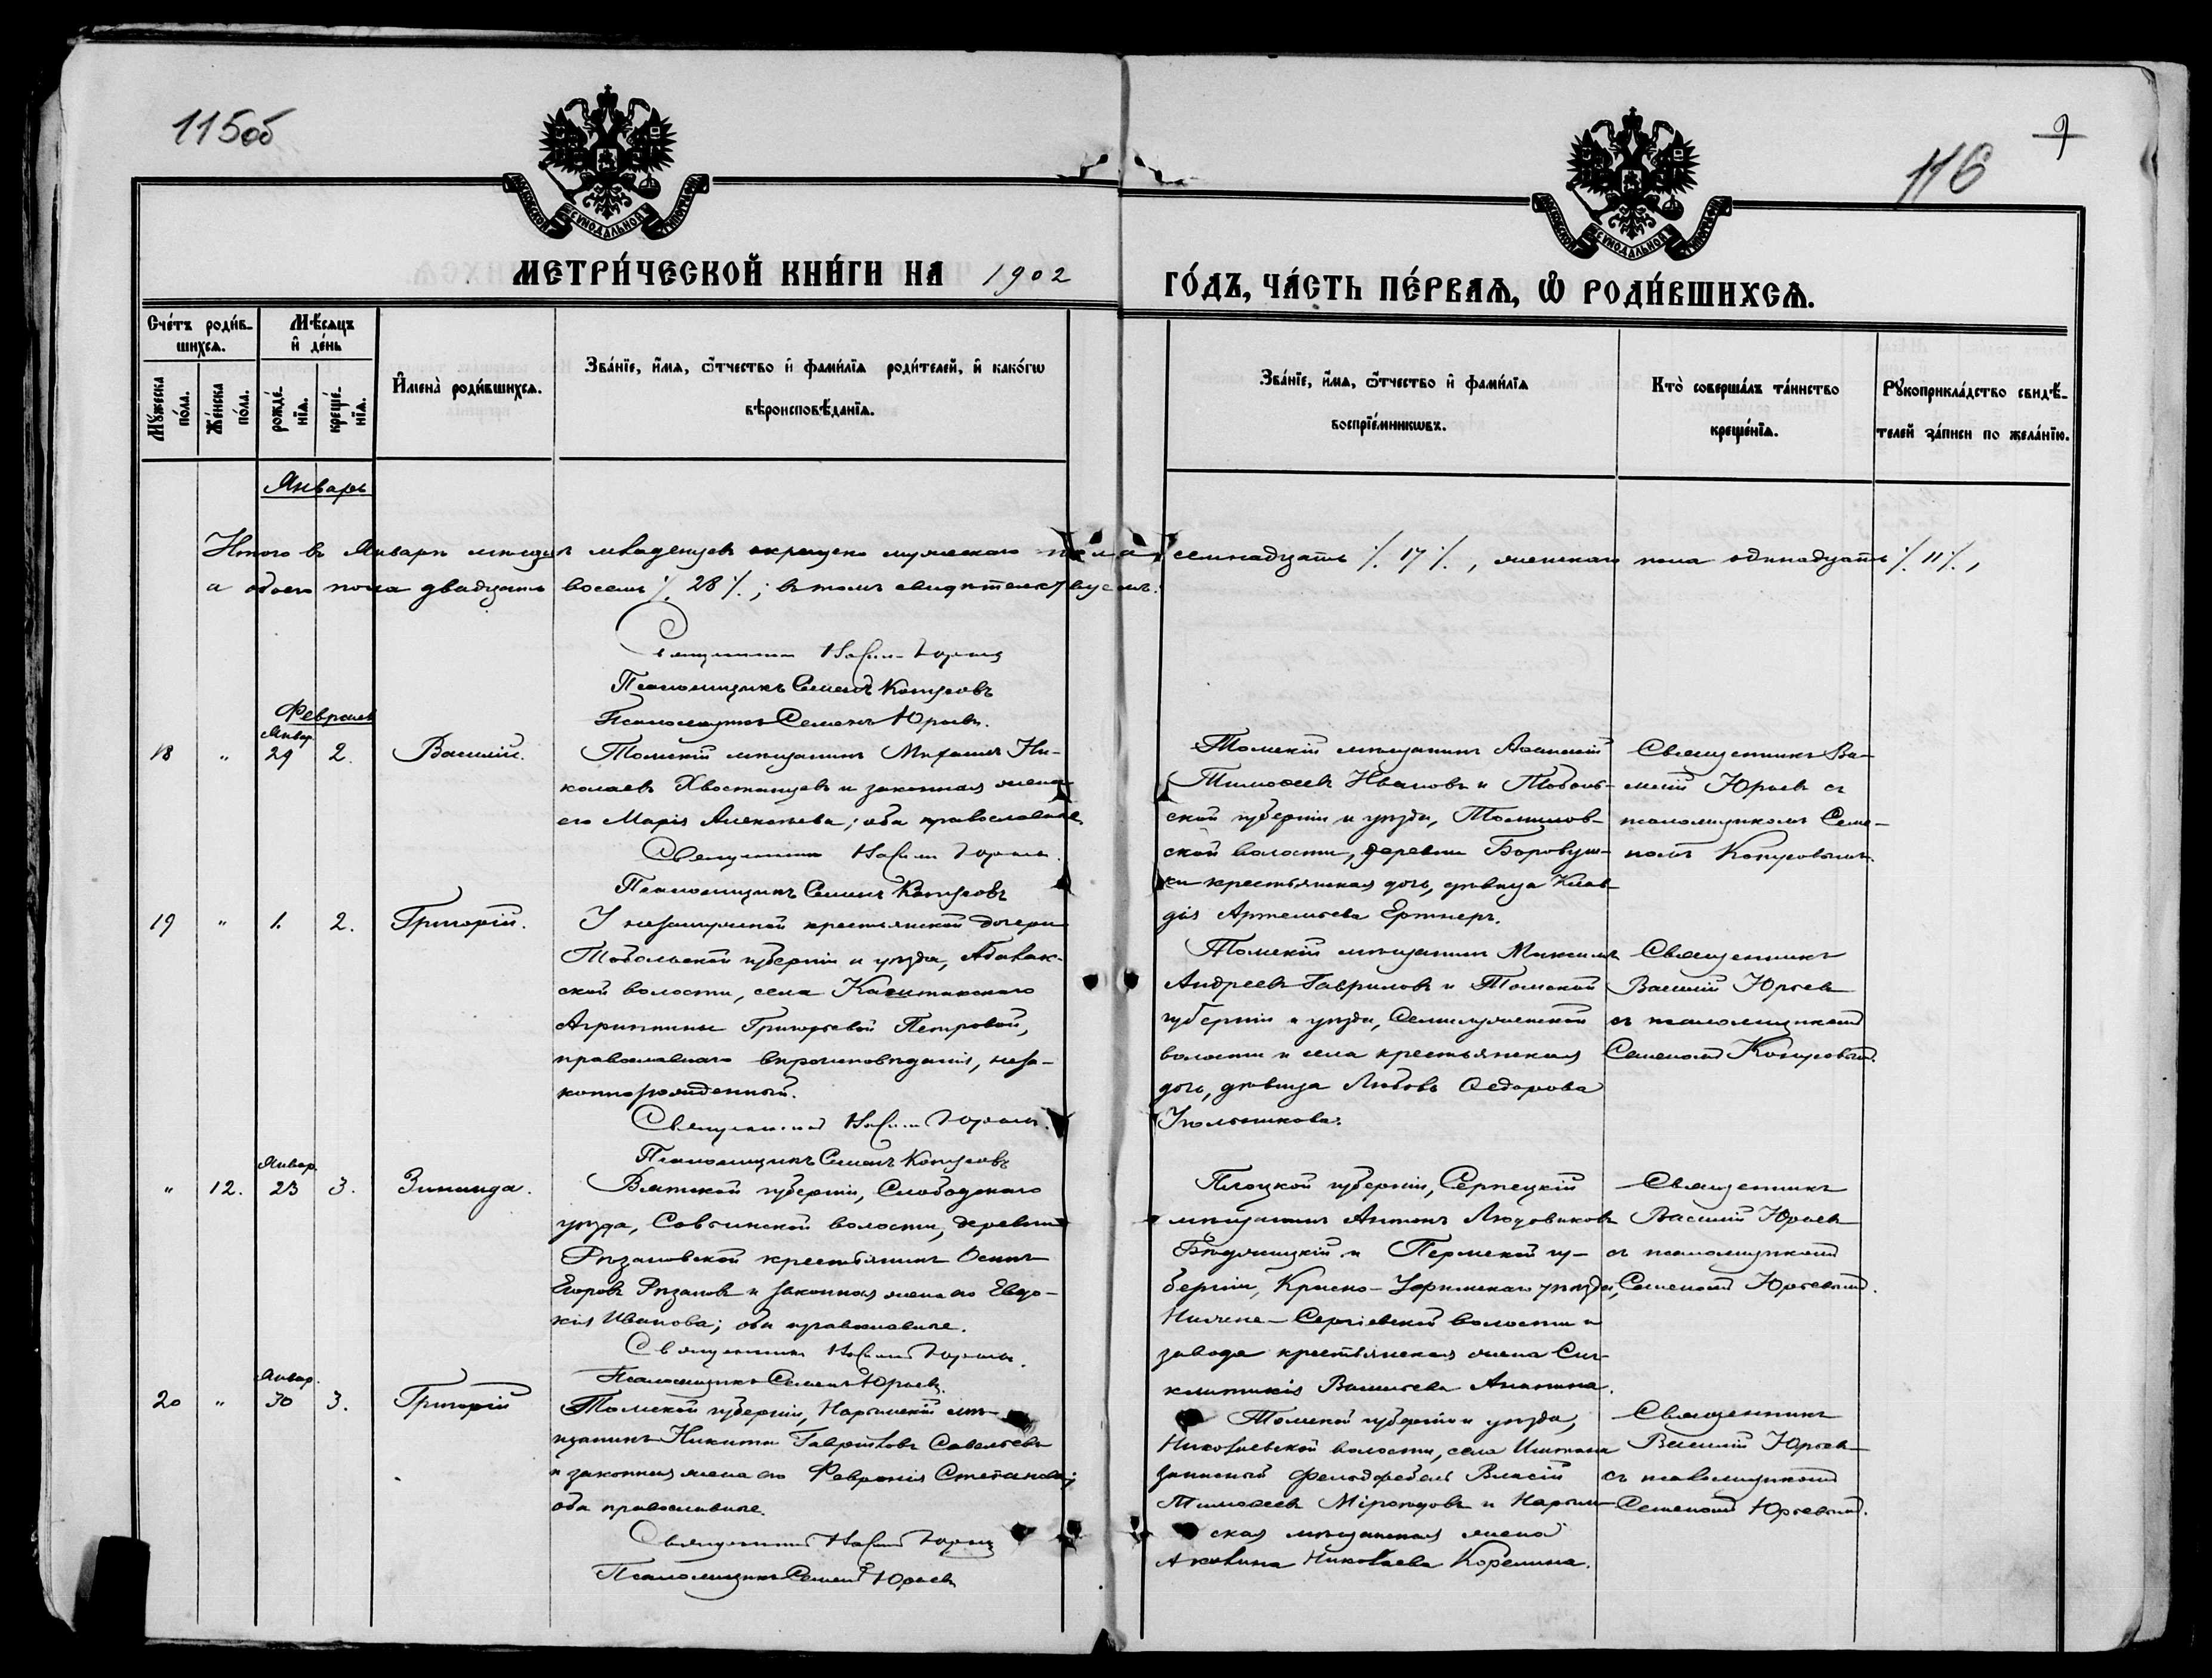 115об
116
9
МОСКОВСКОЙ СѴНОДАЛЬНОЙ ТИПОГРАФІИ
МОСКОВСКОЙ СѴНОДАЛЬНОЙ ТИПОГРАФІИ
МЕТРИ́ЧЕСКОЙ КНИ́ГИ НА 1902
ГО́ДЪ, ЧА́СТЬ ПЕ́РВАѦ, Ѡ РОДИ́ВШИХСѦ.
Сче́тъ роди́в-
шихсѧ.
Мѣ́сѧцъ
и де́нь
Мꙋ́жеска
по́ла.
Же́нска
по́ла.
рожде́-
нїѧ.
креще́-
нїѧ.
И҆мена̀ роди́вшихсѧ.
Зва́нїе, и҆́мѧ, ѻ҆́тчество и҆ фами́лїѧ роди́телей, и҆ како́гѡ
вѣроисповѣ́данїѧ.
Зва́нїе, и҆́мѧ, ѻ҆́тчество и҆ фами́лїѧ
воспрїе́мникѡвъ.
Кто̀ соверша́лъ та́инство
креще́нїѧ.
Рꙋкоприкла́дство свидѣ́-
телей за́писи по жела́нїю.
Январь
Итого въ Январѣ мѣсяцѣ младенцевъ окрещено мужескаго пола семнадцать /. 17 /. , женскаго пола одинадцать /. 11 /. ,
а обоего пола двадцать восемь /. 28 /. ; въ томъ свидѣтельствуемъ:
Священникъ Василій Юрьевъ
Псаломщикъ Семенъ
Псаломщикъ Семенъ Юрьевъ.
Февраль
Январ.
18 " 29 2. Василій.
Томскій мѣщанинъ Михаилъ Ни-
колаевъ Хвостанцевъ и законная жена
его Марія Алексѣева; оба православные.
Священникъ Василій Юрьевъ.
Псаломщикъ Семенъ
Томскій мѣщанинъ
Тимоѳеевъ Ивановъ и Тоболь-
ской губерніи и уѣзда,
ской волости, деревни
ки крестьянская дочь, дѣвица Клав-
дія Артемьева
Священникъ Ва-
силій Юрьевъ съ
псаломщикомъ Семе-
номъ
19 " 1. 2. Григорій.
У незамужней крестьянской дочери
Тобольской губерніи и уѣзда, Абалак-
ской волости, села
Агриппины Григорьевой Петровой,
православнаго вѣроисповѣданія, неза-
коннорожденный.
Священникъ Василій Юрьевъ.
Псаломщикъ Семенъ
Томскій мѣщанинъ Максимъ
Андреевъ Гавриловъ и Томской
губерніи и уѣзда, Семилужинской
волости и села крестьянская
дочь, дѣвица Любовь Ѳедорова
Священникъ
Василій Юрьевъ
съ псаломщикомъ
Семеномъ
Январ.
" 12. 23 3. Зинаида.
Вятской губерніи, Слободскаго
уѣзда, Совьинской волости, деревни
Рязановской крестьянинъ Осипъ
Егоровъ Рязановъ и законная жена его Евдо-
кія Иванова; оба православные.
Священникъ Василій Юрьевъ.
Псаломщикъ Семенъ Юрьевъ.
Плоцкой губерніи, Серпецкій
мѣщанинъ Антонъ Людовиковъ
и Пермской гу-
берніи, Красно-Уфимскаго уѣзда,
Нижне-Сергіевской волости и
завода крестьянская жена Син-
клитикія Васильева
Священникъ
Василій Юрьевъ
съ псаломщикомъ
Семеномъ Юрьевымъ.
Январ.
20 " 30 3. Григорій
Томской губерніи, Нарымскій мѣ-
щанинъ Никита Гавриловъ Савельевъ
и законная жена его Февронія Степанова;
оба православные.
Священникъ Василій Юрьевъ
Псаломщикъ Семенъ Юрьевъ
Томской губерніи и уѣзда,
Николаевской волости, села Иштана
запасный фельдфебель Власій
Тимоѳеевъ и Нарым-
ская мѣщанская жена
Акилина Николаева Корепина.
Священникъ
Василій Юрьевъ
съ псаломщикомъ
Семеномъ Юрьевымъ.